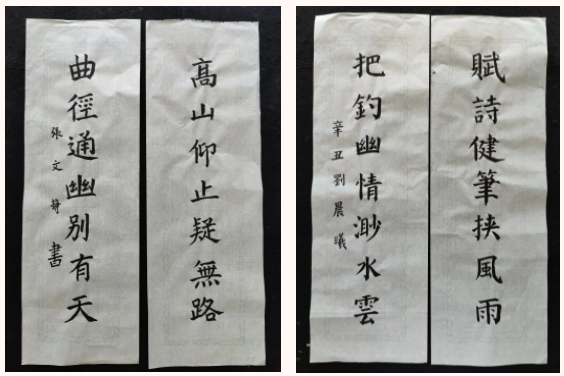 高山仰止疑無路
曲徑通幽別有天
張文静書
賦詩健筆挟風雨
把釣幽情渺水雲
辛丑劉晨曦